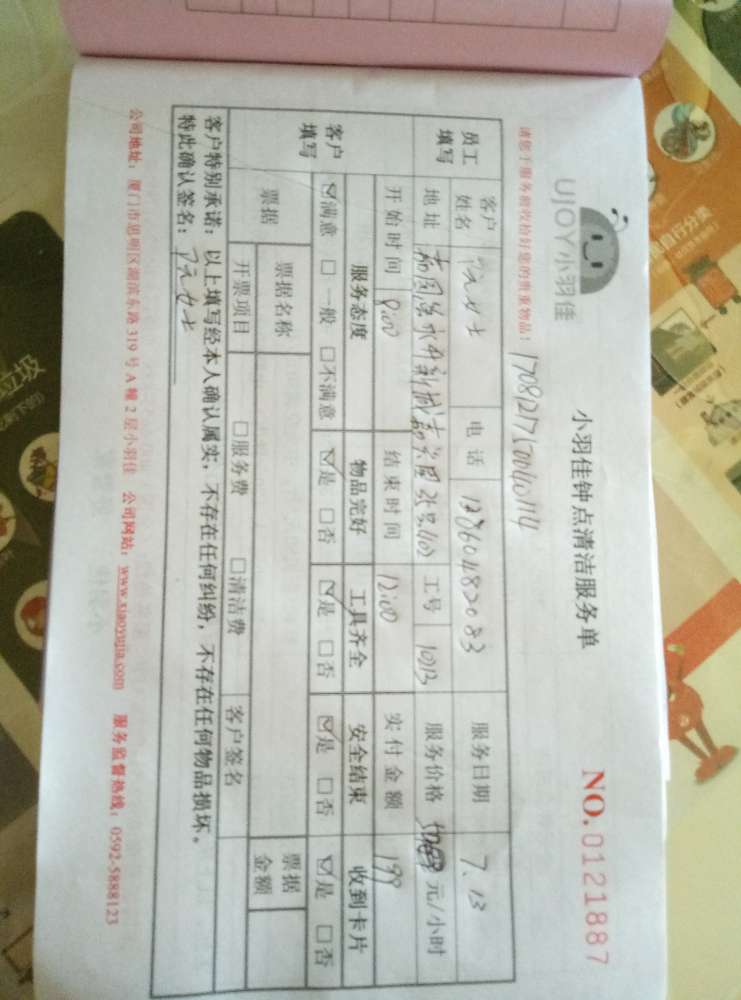 UJOY小羽佳
小羽佳钟点清洁服务单
NO.0121887
请您于服务前收检好您的贵重物品:
员工填写 客户姓名 女士 电话 服务日期 7.13
地址 工号 1013 服务价格 元/小时
开始时间 8:00 结束时间 12:00 实付金额 199
客户填写 服务态度 物品完好 工具齐全 安全结束 收到卡片
☑满意 □一般 □不满意 ☑是 □否 ☑是 □否 ☑是 □否 ☑是 □否
票据 票据名称 票据金额
开票项目 □服务费 □清洁费 客户签名
客户特别承诺:以上填写经本人确认属实,不存在任何纠纷,不存在任何物品损坏。
特此确认签名: 女士
公司地址:厦门市思明区湖滨东路319号A幢2层小羽佳 公司网站:www.xiaoyujia.com 服务监督热线:0592-5888123
自行分类
垃圾